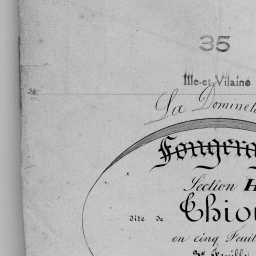 35
Ille-et-Vilaine
La Dominel
Fougera
Section H
dite de Thio
en cinq Feuil